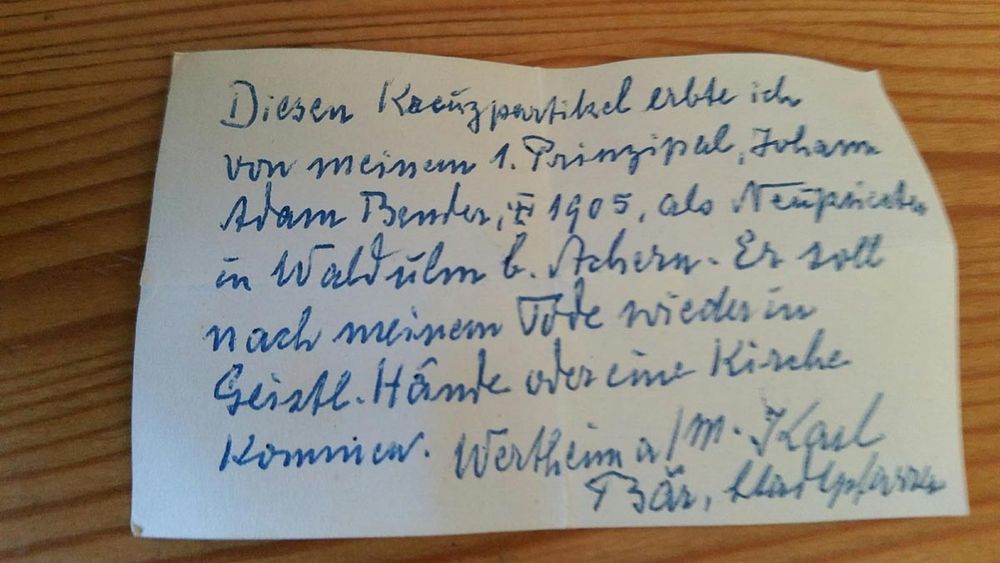 Diesen Kreuzpartikel erbte ich
von meinem 1. Prinzipal, Johann
Adam Bender, 1905, als Neupriester
in Waldulm b. Achern. Er soll
nach meinem Tode wieder in
Geistl. Hände oder eine Kirche
kommen. Wertheim a/M. Karl
Bär, Stadtpfarrer